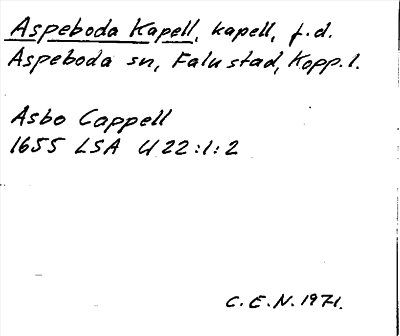 Aspeboda Kapell, kapell, f.d.
Aspeboda sn, Falu stad, Kopp. l.
Asbo Cappell
1655 LSA U22:1:2
C.E.N. 1971.